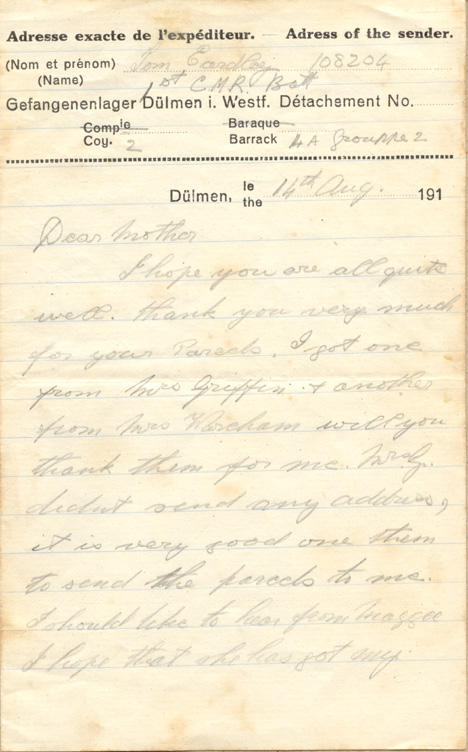 Adresse exacte de l'expéditeur. — Adress of the sender.
(Nom et prénom) Tom Eardley 108204
(Name) 1st C.M.R. Batt
Gefangenenlager Dülmen i. Westf. Détachement No.
Compie Baraque
Coy. 2 Barrack 4A Grouppe 2
Dülmen, le 14th Aug. 191
the
Dear Mother
I hope you are all quite
well. thank you very much
for your Parcels. I got one
from Mrs Griffin & another
from Mrs Kercham will you
thank them for me. Mrs G.
didnt send any address,
it is very good one them
to send the parcels to me.
I should like to hear from Maggie
I hope that she has got my